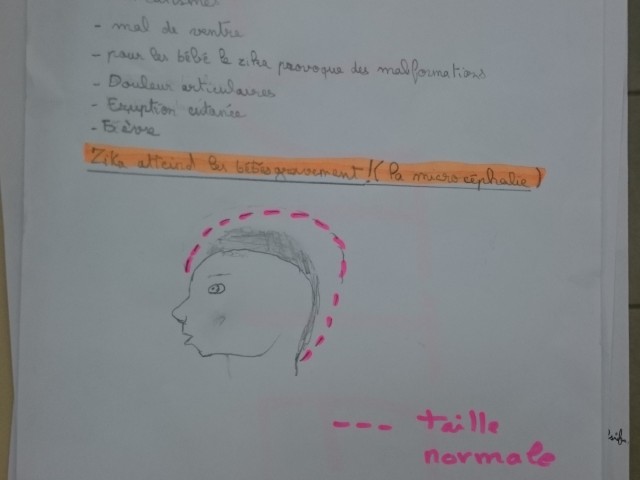 - mal de ventre
- pour les bébé le zika provoque des malformations
- Douleur articulaires
- Eruption cutanée
- Fièvre
Zika atteind les bébés gravement! ( la microcéphalie )
--- taille
normale